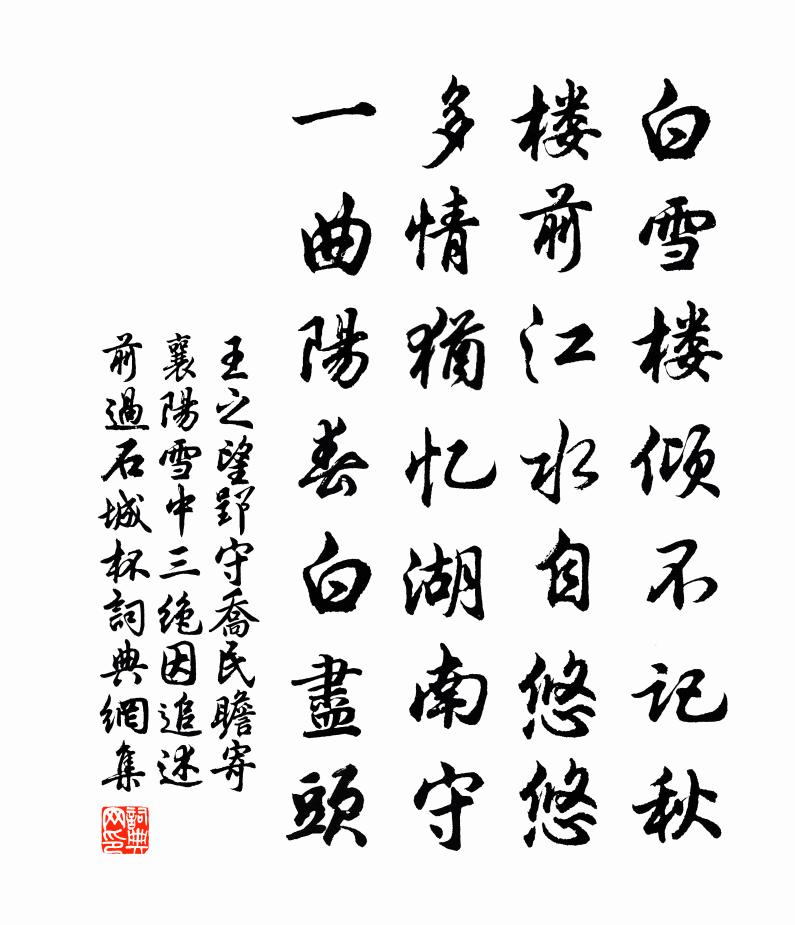 白雪楼倾不记秋
楼前江水自悠悠
多情猶忆湖南守
一曲陽春白盡頭
王之望郢守喬民瞻寄
襄陽雪中三绝因追述
前過石城杯詞典網集
詞典网印